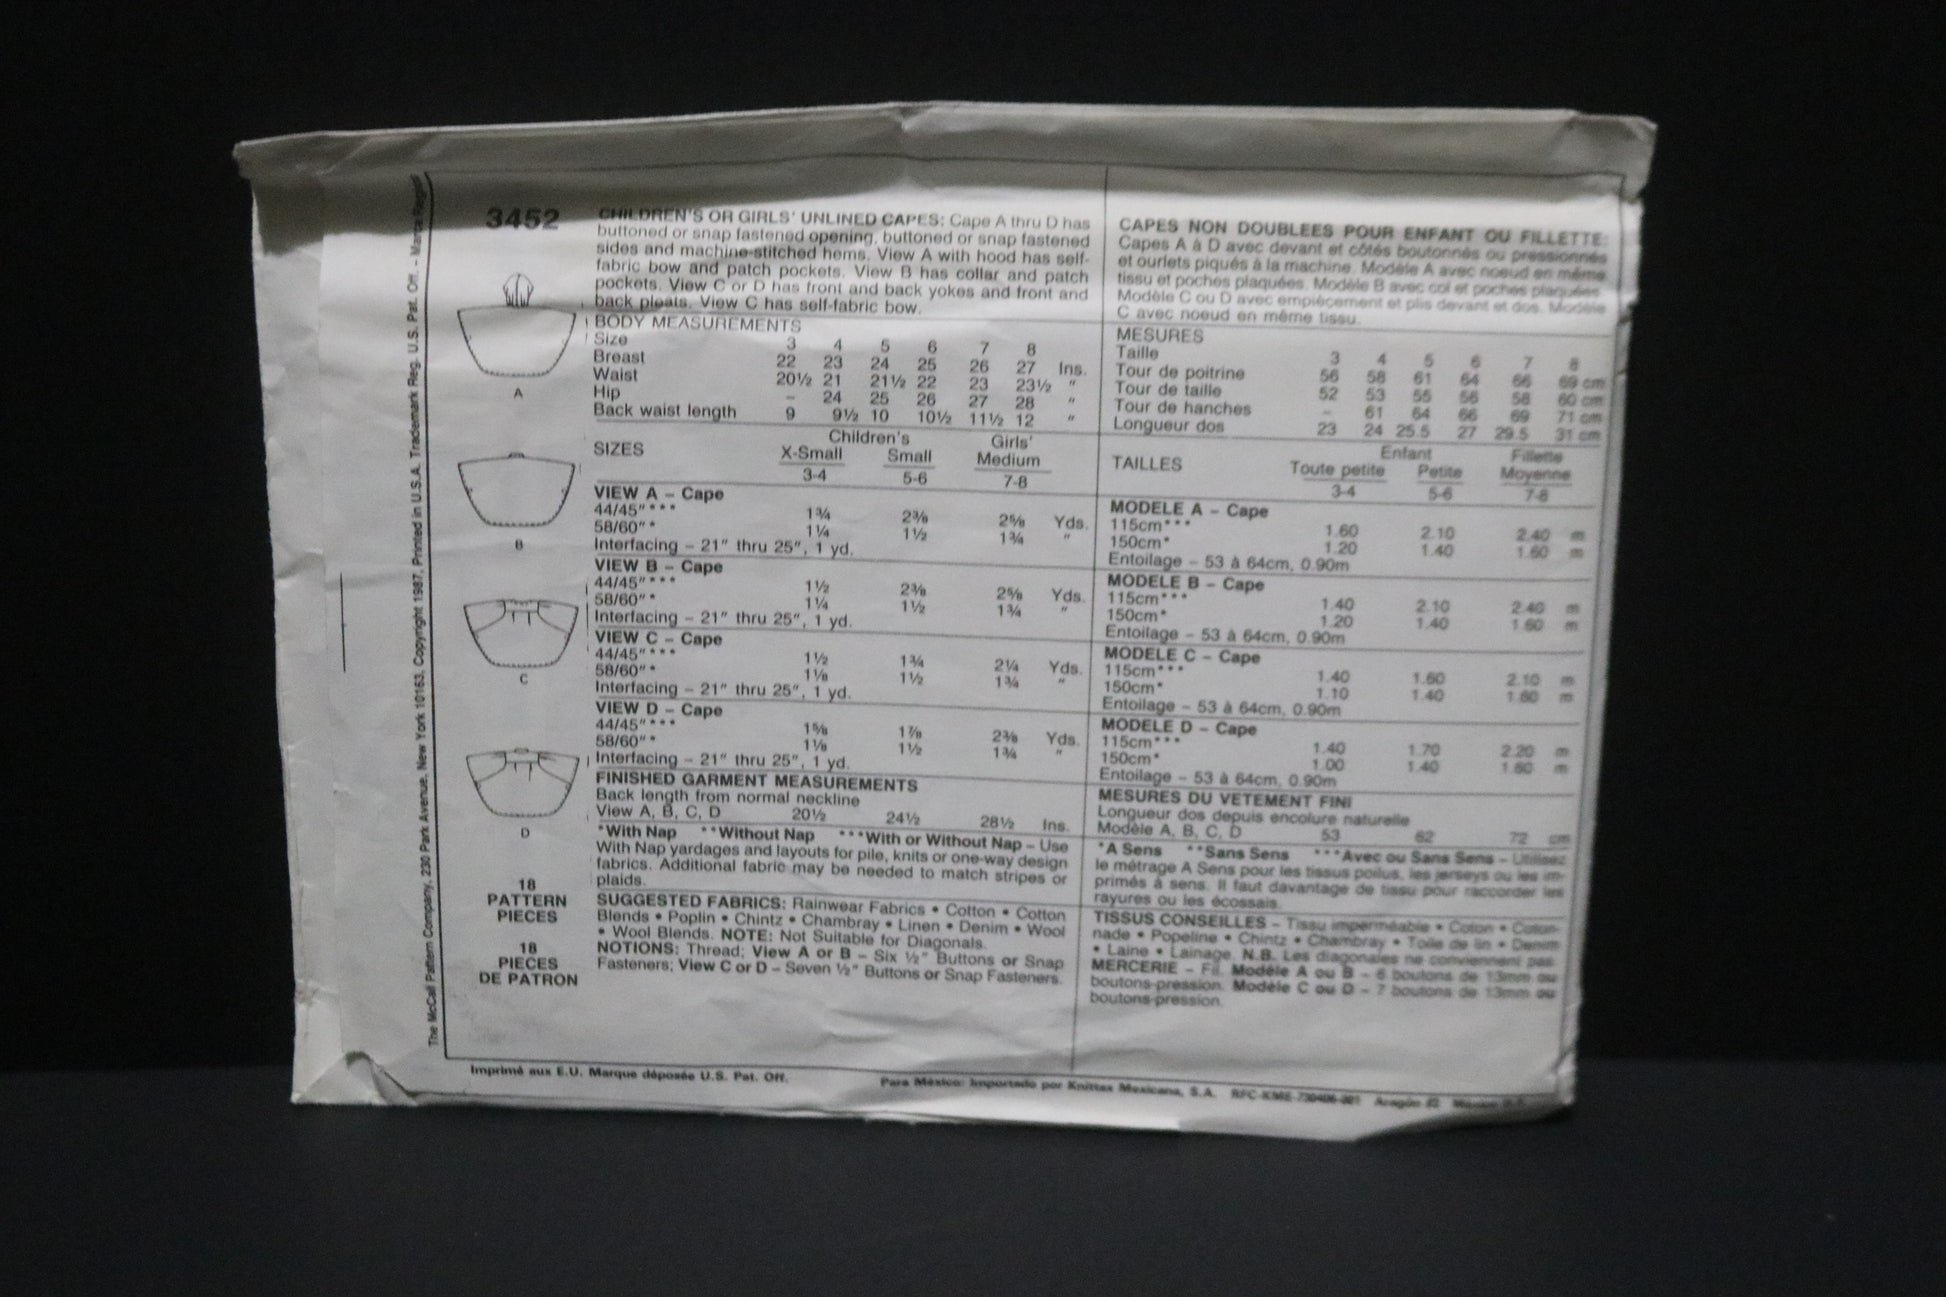 3452
CHILDREN'S OR GIRLS' UNLINED CAPES: Cape A thru D has
buttoned or snap fastened opening, buttoned or snap fastened
sides and machine-stitched hems. View A with hood has self-
fabric bow and patch pockets. View B has collar and patch
pockets. View C or D has front and back yokes and front and
back pleats. View C has self-fabric bow.
BODY MEASUREMENTS
Size 3 4 5 6 7 8
Breast 22 23 24 25 26 27 Ins.
Waist 20½ 21 21½ 22 23 23½ "
Hip – 24 25 26 27 28 "
Back waist length 9 9½ 10 10½ 11½ 12 "
Children's Girls'
SIZES X-Small Small Medium
3-4 5-6 7-8
VIEW A – Cape
44/45"*** 1¾ 2⅜ 2⅝ Yds.
58/60"* 1¼ 1½ 1¾ "
Interfacing – 21" thru 25", 1 yd.
VIEW B – Cape
44/45"*** 1½ 2⅜ 2⅝ Yds.
58/60"* 1¼ 1½ 1¾ "
Interfacing – 21" thru 25", 1 yd.
VIEW C – Cape
44/45"*** 1½ 1¾ 2¼ Yds.
58/60"* 1⅛ 1½ 1¾ "
Interfacing – 21" thru 25", 1 yd.
VIEW D – Cape
44/45"*** 1⅝ 1⅞ 2⅜ Yds.
58/60"* 1⅛ 1½ 1¾ "
Interfacing – 21" thru 25", 1 yd.
FINISHED GARMENT MEASUREMENTS
Back length from normal neckline
View A, B, C, D 20½ 24½ 28½ Ins.
*With Nap **Without Nap ***With or Without Nap – Use
With Nap yardages and layouts for pile, knits or one-way design
fabrics. Additional fabric may be needed to match stripes or
plaids.
SUGGESTED FABRICS: Rainwear Fabrics • Cotton • Cotton
Blends • Poplin • Chintz • Chambray • Linen • Denim • Wool
• Wool Blends. NOTE: Not Suitable for Diagonals.
NOTIONS: Thread; View A or B – Six ½" Buttons or Snap
Fasteners; View C or D – Seven ½" Buttons or Snap Fasteners.
CAPES NON DOUBLEES POUR ENFANT OU FILLETTE:
Capes A à D avec devant et côtés boutonnés ou pressionnés
et ourlets piqués à la machine. Modèle A avec noeud en même
tissu et poches plaquées. Modèle B avec col et poches plaquées.
Modèle C ou D avec empiècement et plis devant et dos. Modèle
C avec noeud en même tissu.
MESURES
Taille 3 4 5 6 7 8
Tour de poitrine 56 58 61 64 66 69 cm
Tour de taille 52 53 55 56 58 60 cm
Tour de hanches – 61 64 66 69 71 cm
Longueur dos 23 24 25.5 27 29.5 31 cm
Enfant Fillette
TAILLES Toute petite Petite Moyenne
3-4 5-6 7-8
MODELE A – Cape
115cm*** 1.60 2.10 2.40 m
150cm* 1.20 1.40 1.60 m
Entoilage – 53 à 64cm, 0.90m
MODELE B – Cape
115cm*** 1.40 2.10 2.40 m
150cm* 1.20 1.40 1.60 m
Entoilage – 53 à 64cm, 0.90m
MODELE C – Cape
115cm*** 1.40 1.60 2.10 m
150cm* 1.10 1.40 1.60 m
Entoilage – 53 à 64cm, 0.90m
MODELE D – Cape
115cm*** 1.40 1.70 2.20 m
150cm* 1.00 1.40 1.60 m
Entoilage – 53 à 64cm, 0.90m
MESURES DU VETEMENT FINI
Longueur dos depuis encolure naturelle
Modèle A, B, C, D 53 62 72 cm
*A Sens **Sans Sens ***Avec ou Sans Sens – Utilisez
le métrage A Sens pour les tissus poilus, les jerseys ou les im-
primés à sens. Il faut davantage de tissu pour raccorder les
rayures ou les écossais.
TISSUS CONSEILLES – Tissu imperméable • Coton • Coton-
nade • Popeline • Chintz • Chambray • Toile de lin • Denim
• Laine • Lainage. N.B. Les diagonales ne conviennent pas.
MERCERIE – Fil. Modèle A ou B – 6 boutons de 13mm ou
boutons-pression. Modèle C ou D – 7 boutons de 13mm ou
boutons-pression.
A
B
C
D
18
PATTERN
PIECES
18
PIECES
DE PATRON
The McCall Pattern Company, 230 Park Avenue, New York 10163, Copyright 1987, Printed in U.S.A. Trademark Reg. U.S. Pat. Off. – Marca
Imprimé aux E.U. Marque déposée U.S. Pat. Off.
Para México: Importado por Knittax Mexicana, S.A. RFC-KME-730406-001 Aragón